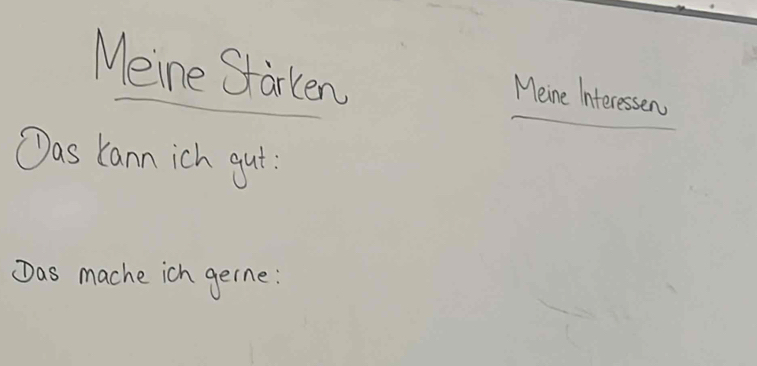 Meine Stärken
Meine Interessen
Das kann ich gut:
Das mache ich gerne: